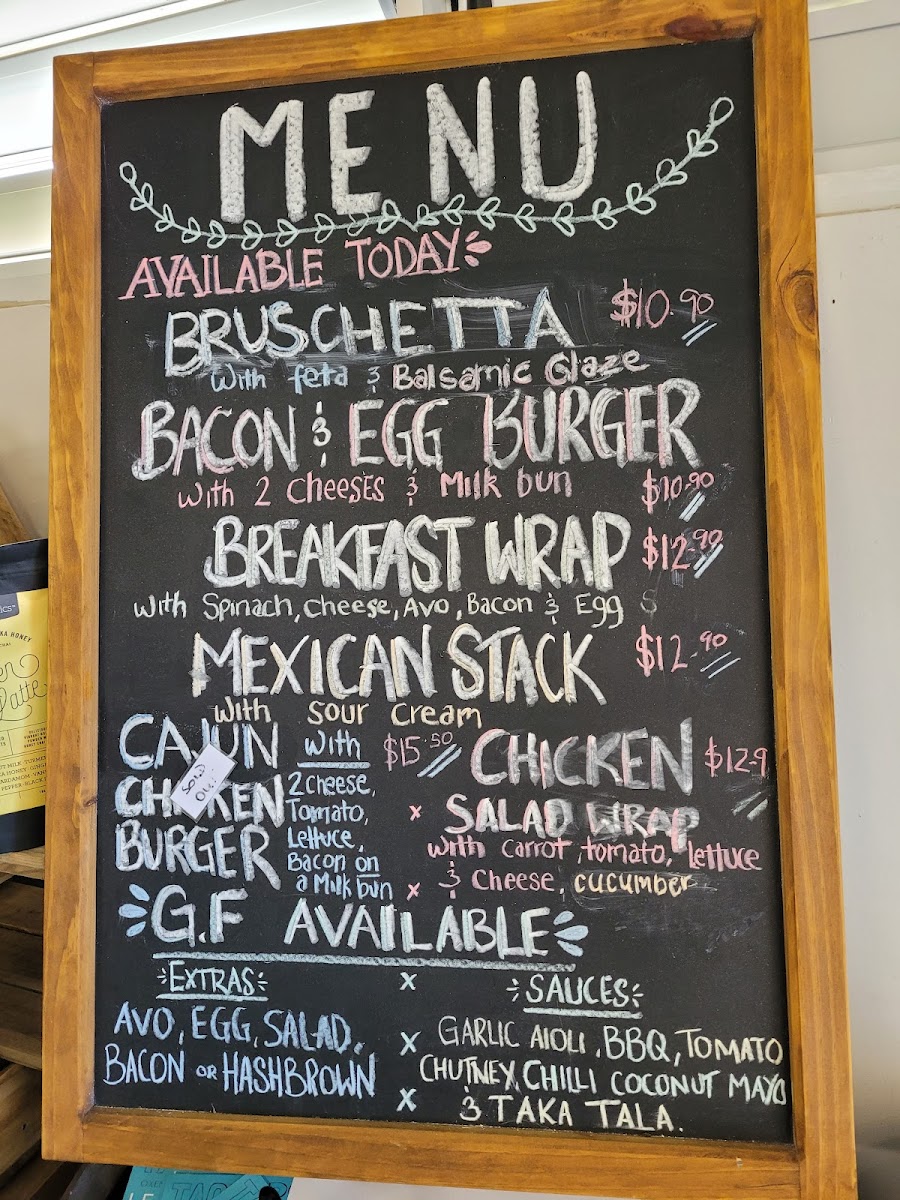 MENU
AVAILABLE TODAY
BRUSCHETTA $10.90
With feta & Balsamic Glaze
BACON & EGG BURGER
With 2 Cheeses & Milk bun $10.90
BREAKFAST WRAP $12.90
With Spinach, Cheese, Avo, Bacon & Egg
MEXICAN STACK $12.90
With Sour Cream
CAJUN CHICKEN BURGER
With $15.50
2 Cheese,
Tomato,
Lettuce,
Bacon on
a Milk bun
SOLD
OUT
CHICKEN $12.9
SALAD WRAP
With Carrot, tomato, lettuce
& Cheese, cucumber
G.F AVAILABLE
EXTRAS
AVO, EGG, SALAD,
BACON OR HASHBROWN
SAUCES
GARLIC AIOLI, BBQ, TOMATO
CHUTNEY, CHILLI COCONUT MAYO
& TAKA TALA.
KA HONEY
Latte